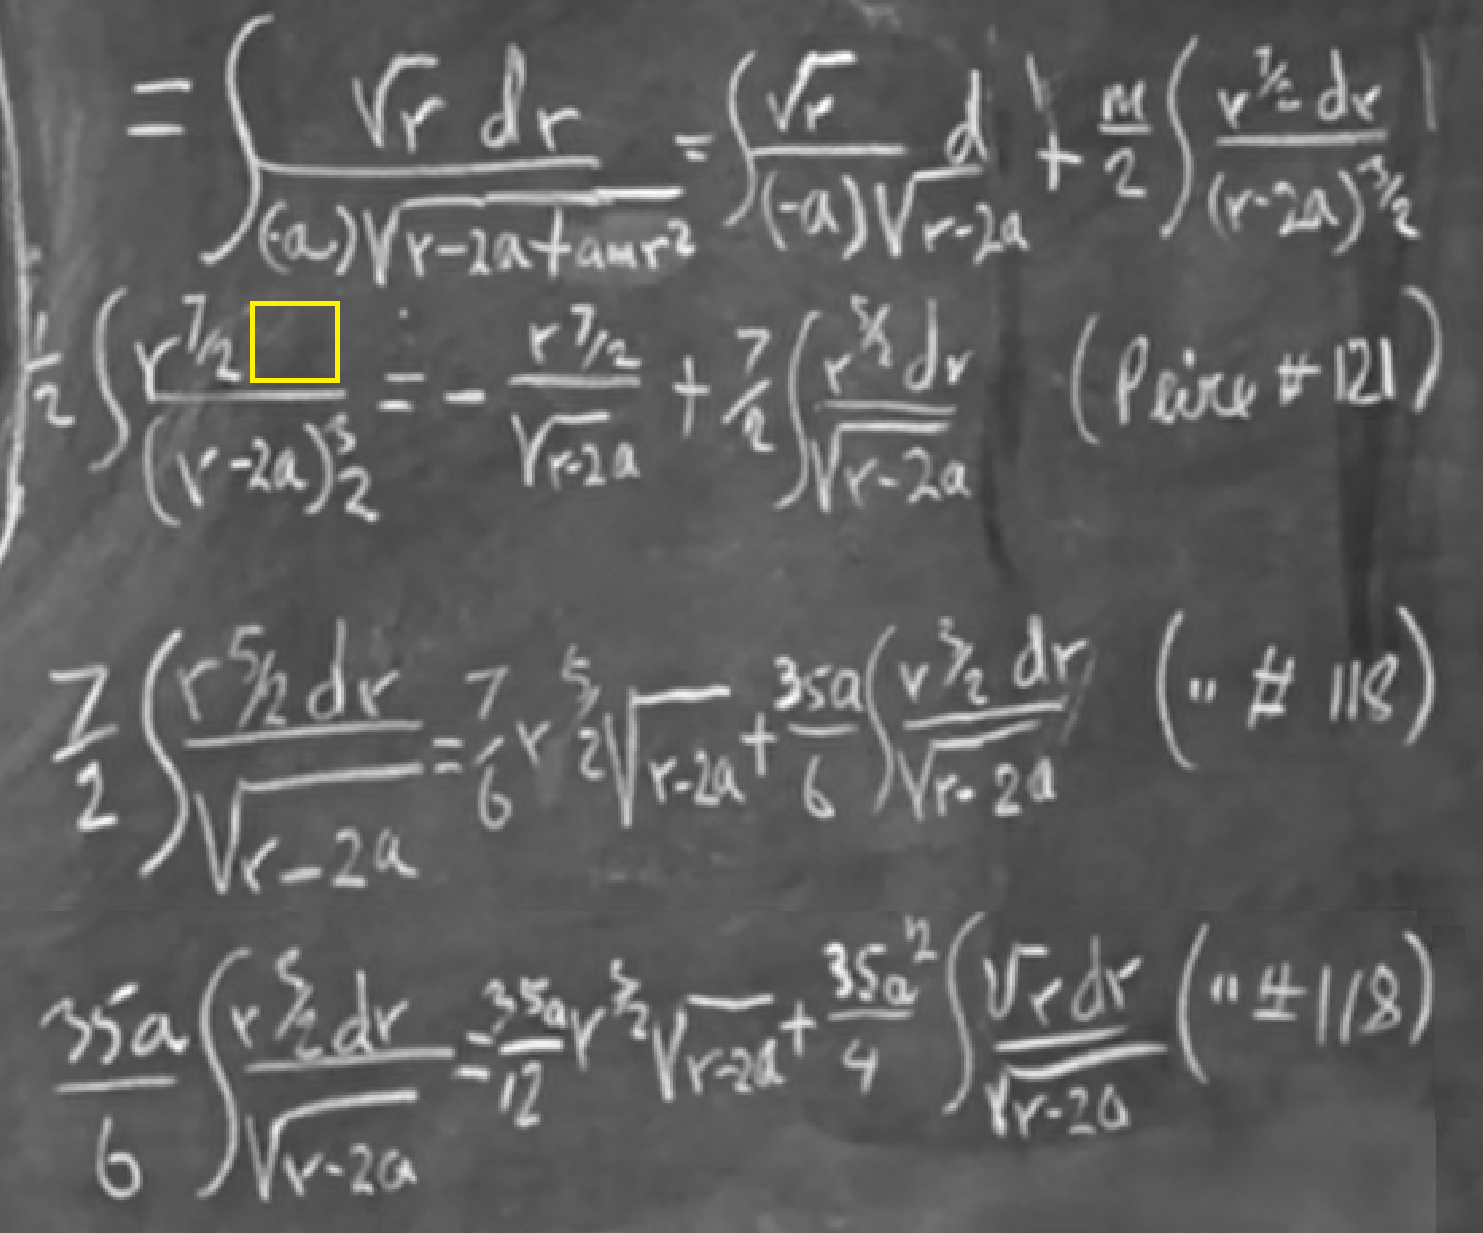 = ∫ √r dr / (-a)√(r-2a+amr²) = ∫ √r / (-a)√(r-2a) d + M/2 ∫ r^7/2 dr / (r-2a)^3/2
1/2 ∫ r^7/2 / (r-2a)^3/2 = - r^7/2 / √(r-2a) + 7/2 ∫ r^5/2 dr / √(r-2a) (Peirce #121)
7/2 ∫ r^5/2 dr / √(r-2a) = 7/6 r^5/2 √(r-2a) + 35a/6 ∫ r^3/2 dr / √(r-2a) (" # 118)
35a/6 ∫ r^3/2 dr / √(r-2a) = 35a/12 r^3/2 √(r-2a) + 35a²/4 ∫ √r dr / √(r-2a) (" #118)